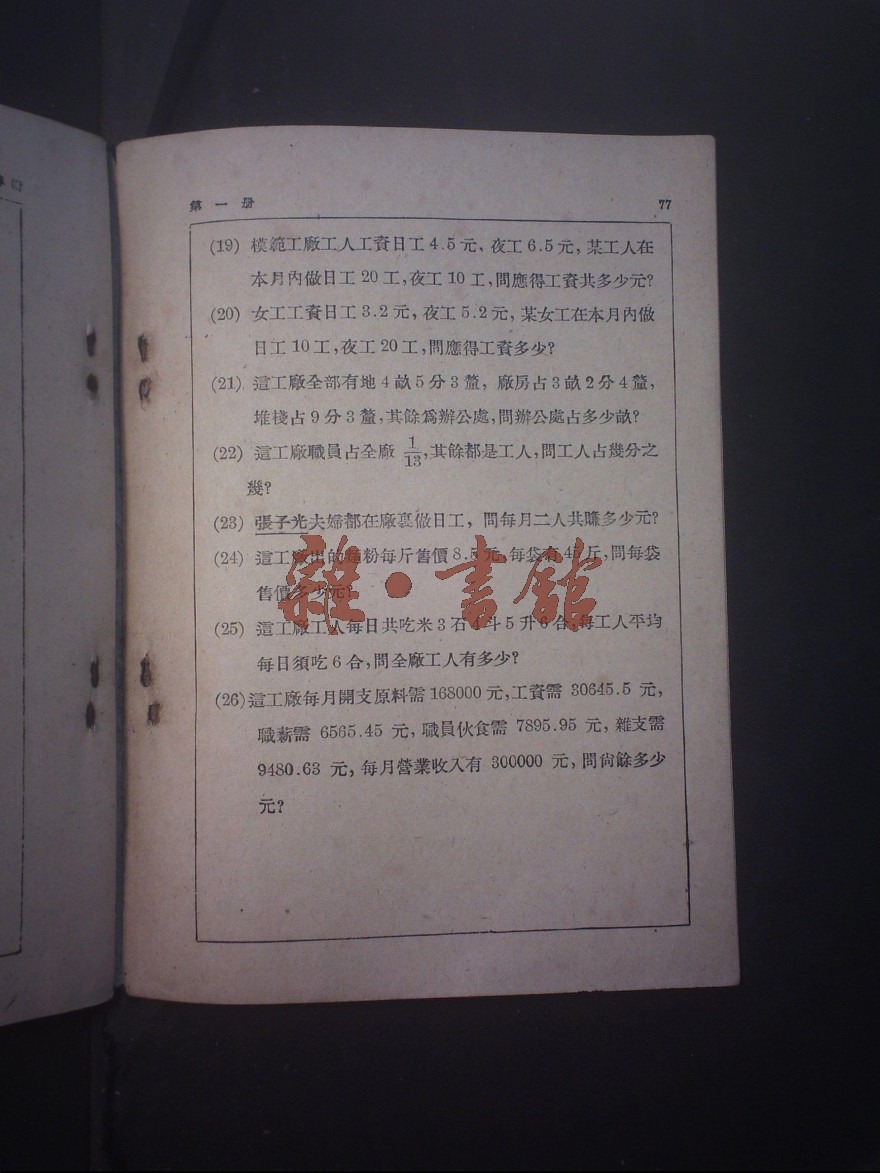 第一册 77
(19) 模範工廠工人工資日工 4.5 元、夜工 6.5 元, 某工人在
本月內做日工 20 工,夜工 10 工,問應得工資共多少元?
(20) 女工工資日工 3.2 元, 夜工 5.2 元, 某女工在本月內做
日工 10 工,夜工 20 工,問應得工資多少?
(21) 這工廠全部有地 4 畝 5 分 3 釐, 廠房占 3 畝 2 分 4 釐,
堆棧占 9 分 3 釐,其餘爲辦公處,問辦公處占多少畝?
(22) 這工廠職員占全廠 1/13,其餘都是工人,問工人占幾分之
幾?
(23) 張子光夫婦都在廠裏做日工, 問每月二人共賺多少元?
(24) 這工廠出的麵粉每斤售價 8.5 元,每袋有 45 斤,問每袋
售價多少元?
(25) 這工廠工人每日共吃米 3 石 4 斗 5 升 6 合,每工人平均
每日須吃 6 合,問全廠工人有多少?
(26) 這工廠每月開支原料需 168000 元,工資需 30645.5 元,
職薪需 6565.45 元, 職員伙食需 7895.95 元, 雜支需
9480.63 元, 每月營業收入有 300000 元, 問尙餘多少
元?
雜·書館